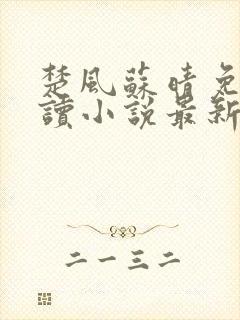 楚風蘇晴免
讀小說最新
二一三二